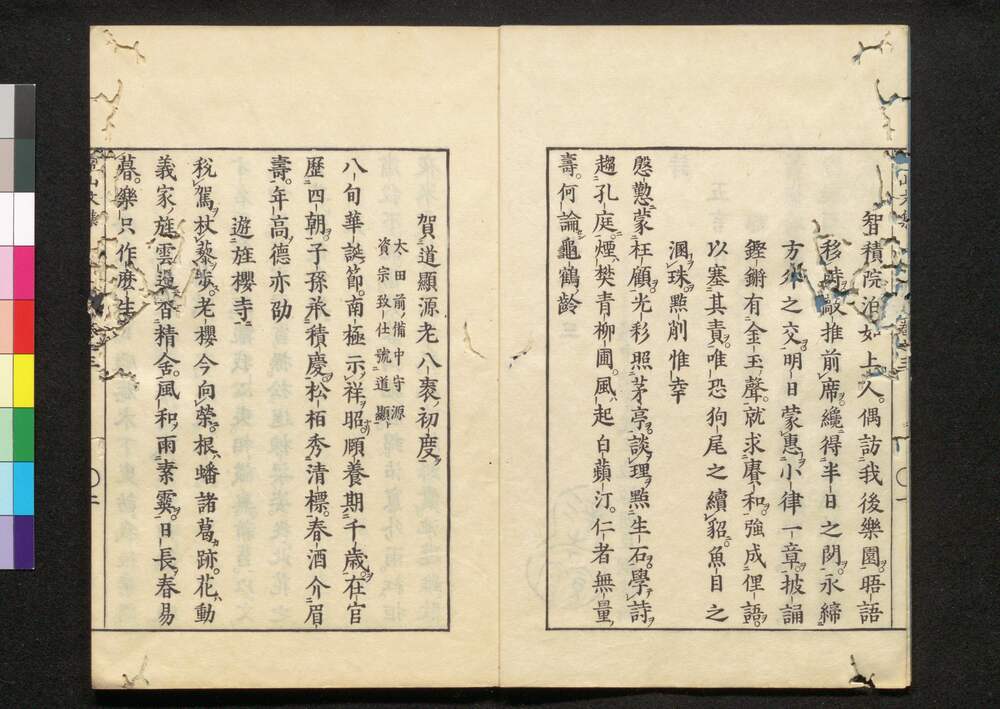 智積院泊如上人偶訪我後樂園晤語
移時敲推前席纔得半日之閑永締
方外之交明日蒙惠小律一章披誦
鏗鏘有金玉聲就求賡和強成俚語
以塞其責唯恐狗尾之續貂魚目之
溷珠點削惟幸
慇懃蒙枉顧光彩照茅亭談理點生石學詩
趨孔庭煙樊青柳圃風起白蘋汀仁者無量
壽何論龜鶴齡
賀道顯源老八袠初度
太田前備中守源
資宗致仕號道顯
八旬華誕節南極示祥昭頤養期千歲在官
歷四朝子孫承積慶松柏秀清標春酒介眉
壽年高德亦劭
遊旌櫻寺
稅駕杖藜步老櫻今向榮根蟠諸葛跡花動
義家旌雲過昏精舍風和雨素霙日長春易
暮樂只作麽生